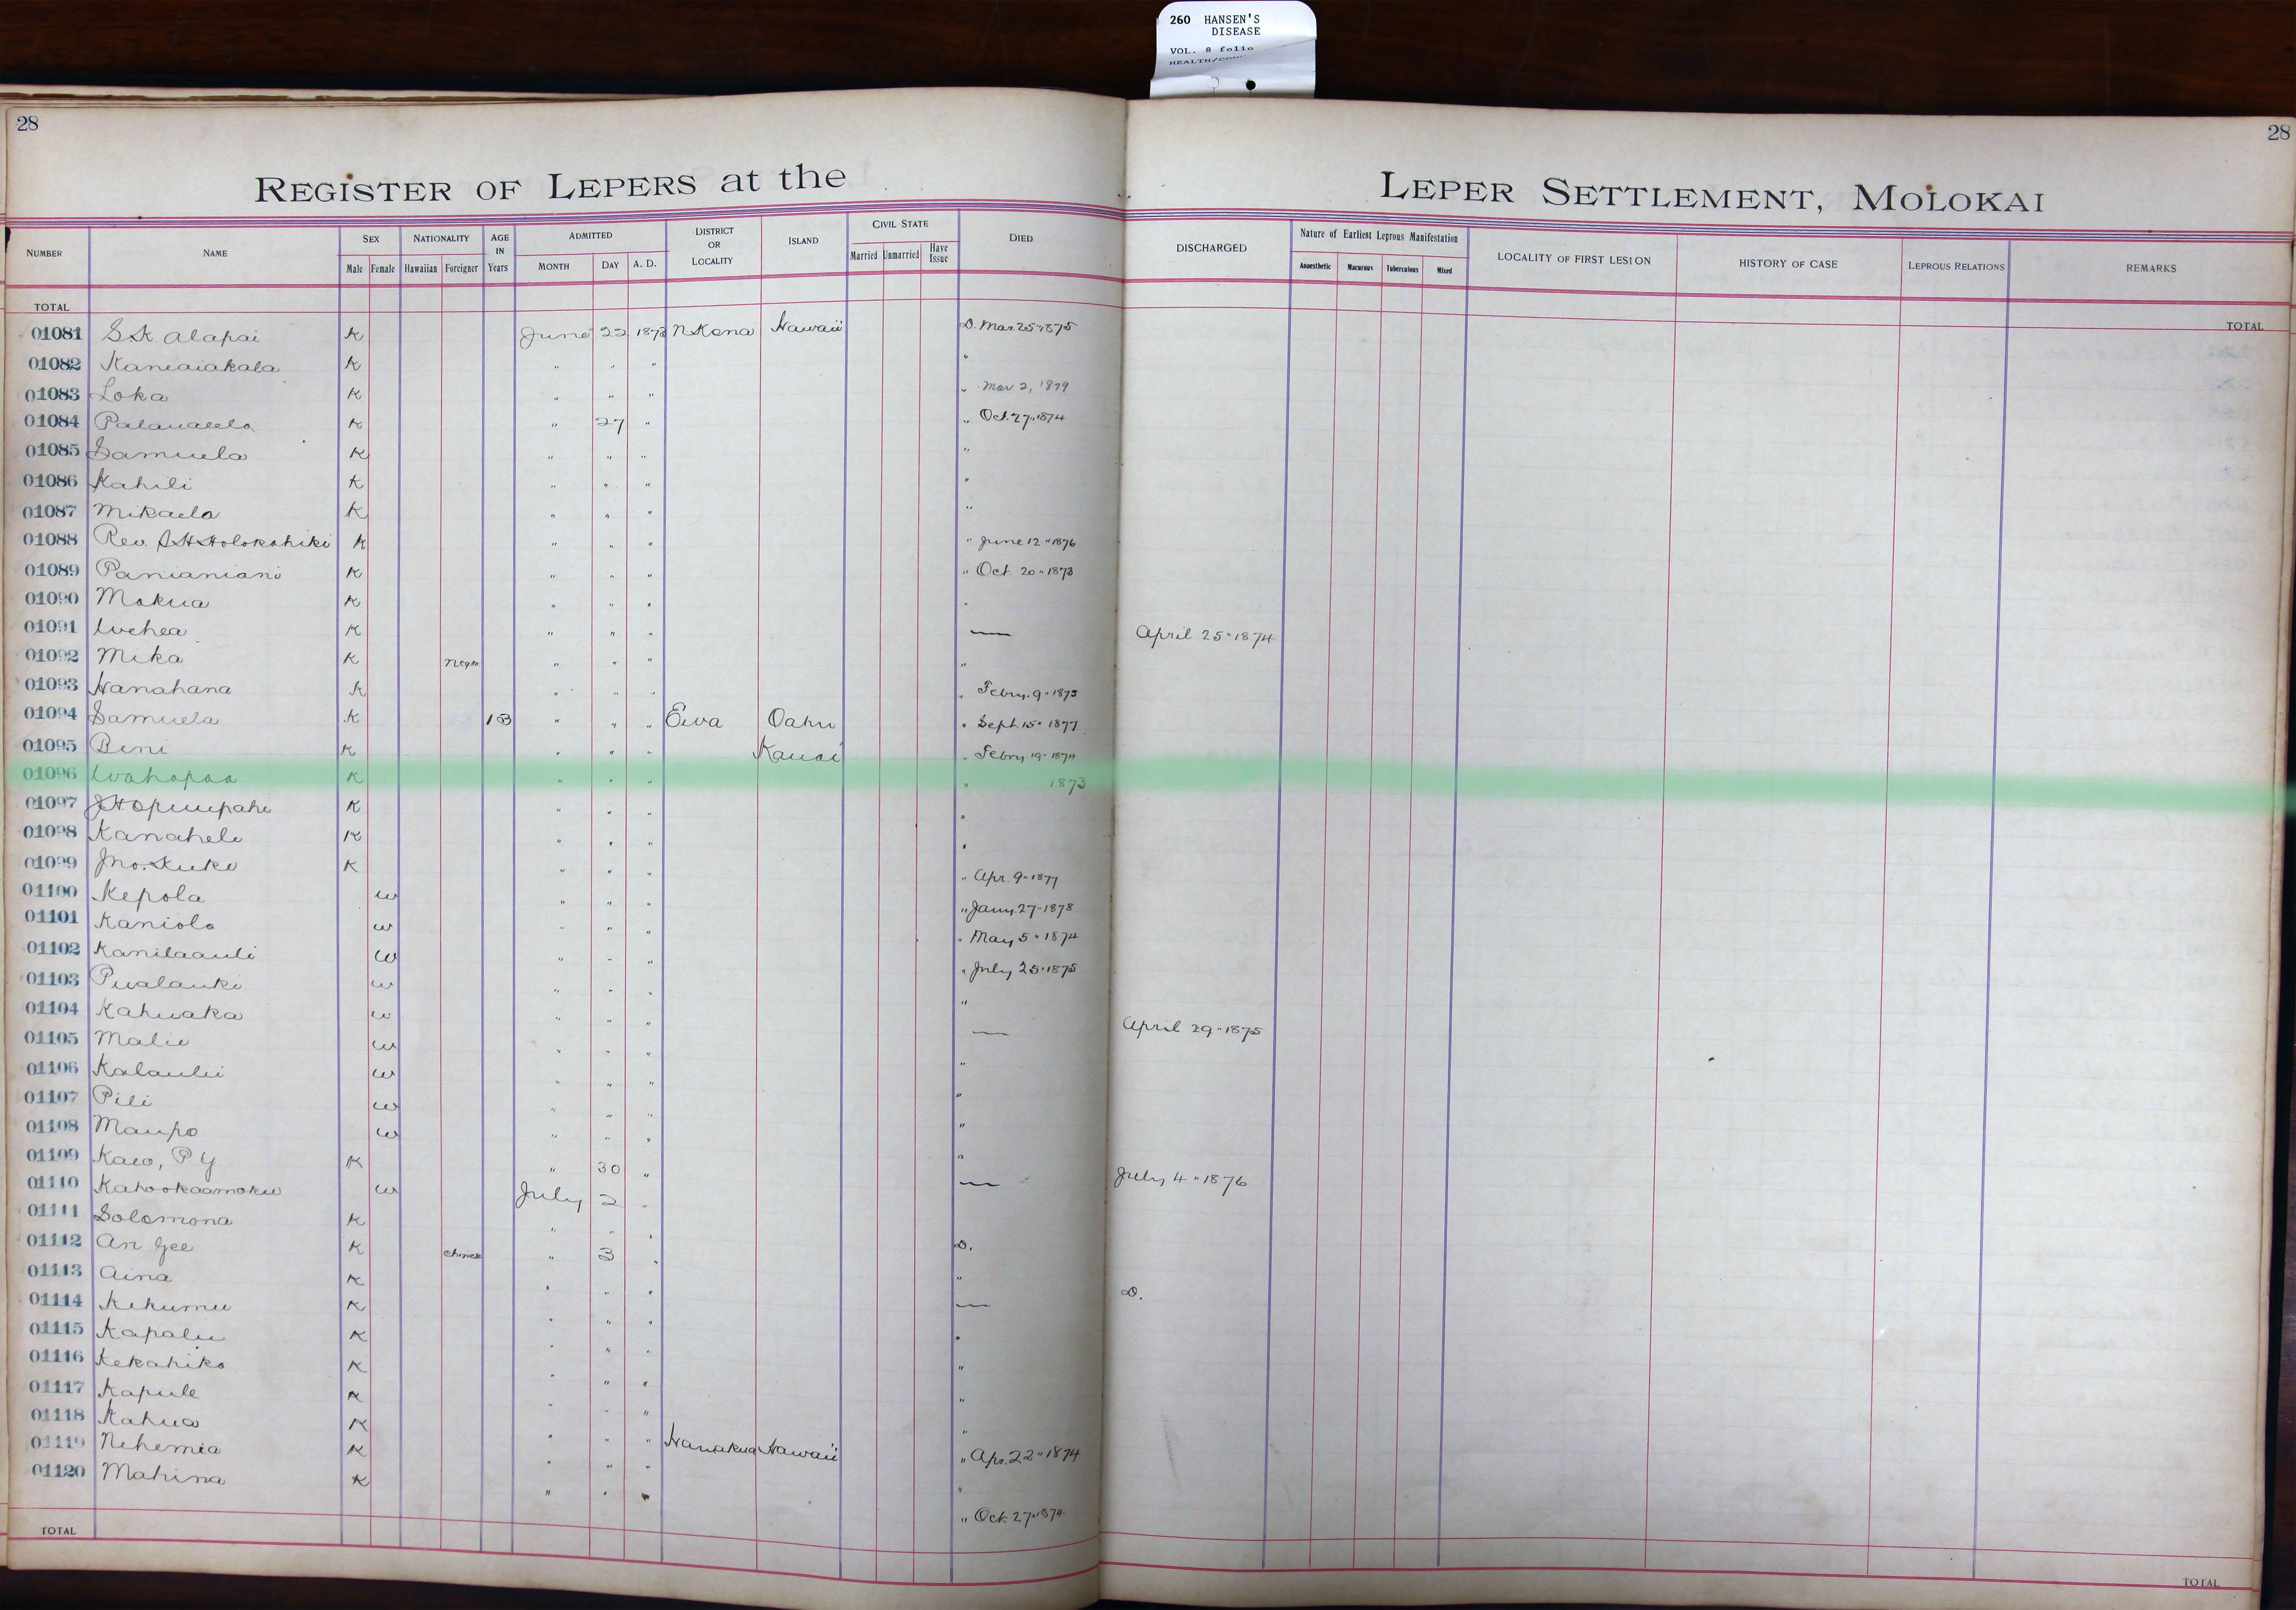 260 HANSEN'S
DISEASE
VOL. 8 folio
28
28
REGISTER OF LEPERS at the LEPER SETTLEMENT, MOLOKAI
NUMBER NAME SEX NATIONALITY AGE IN Years ADMITTED DISTRICT OR LOCALITY ISLAND CIVIL STATE DIED DISCHARGED Nature of Earliest Leprous Manifestation LOCALITY OF FIRST LESION HISTORY OF CASE LEPROUS RELATIONS REMARKS
Male Female Hawaiian Foreigner MONTH DAY A. D. Married Unmarried Have Issue Anaesthetic Macurous Tuberculous Mixed
TOTAL TOTAL
01081 S.K. Alapai K June 22 1873 N Kona Hawaii D. Mar. 25 " 1875
01082 Kaneaiakala K " " " "
01083 Loka K " " " " Mar 2, 1879
01084 K " 27 " " Oct. 27 " 1874
01085 Samuela K " " " "
01086 Kahili K " " " "
01087 Mikaela K " " " "
01088 Rev. S H Holokahiki K " " " " June 12 " 1876
01089 Panianiani K " " " " Oct. 20 " 1873
01090 Mokua K " " " "
01091 Wehea K " " " — April 25 " 1874
01092 Mika K Negro " " " "
01093 Hanahana K " " " " Febry. 9 " 1875
01094 Samuela K 13 " " " Ewa Oahu " Sept. 15 " 1877
01095 Beni K " " " Kauai " Febry 19 " 1874
01096 Wahapaa K " " " " 1873
01097 J.H. Opuupahe K " " " "
01098 Kanahele K " " " "
01099 Jno. Kuke K " " " " Apr. 9 " 1877
01100 Kepola W " " " " Jany. 27 " 1878
01101 Kaniolo W " " " " May 5 " 1874
01102 Kanilaauli W " " " " July 25 " 1875
01103 Pualauki W " " " "
01104 Kahuaka W " " " — April 29 " 1875
01105 Malie W " " " "
01106 Kalaulii W " " " "
01107 Pili W " " " "
01108 Maupo W " " " "
01109 Kaeo, P Y K " 30 " — July 4 " 1876
01110 Kahookaamoku W July 2 "
01111 Solomona K " " " D.
01112 An Gee K Chinese " 3 " "
01113 Aina K " " " — D.
01114 Kekumu K " " " "
01115 Kapalu K " " " "
01116 Kekahiko K " " " "
01117 Kapule K " " " "
01118 Kahua K " " "
01119 Nehemia K " " " Hamakua Hawaii " Apr. 22 " 1874
01120 Mahina K " " " "
" Oct. 27 " 1874
TOTAL TOTAL